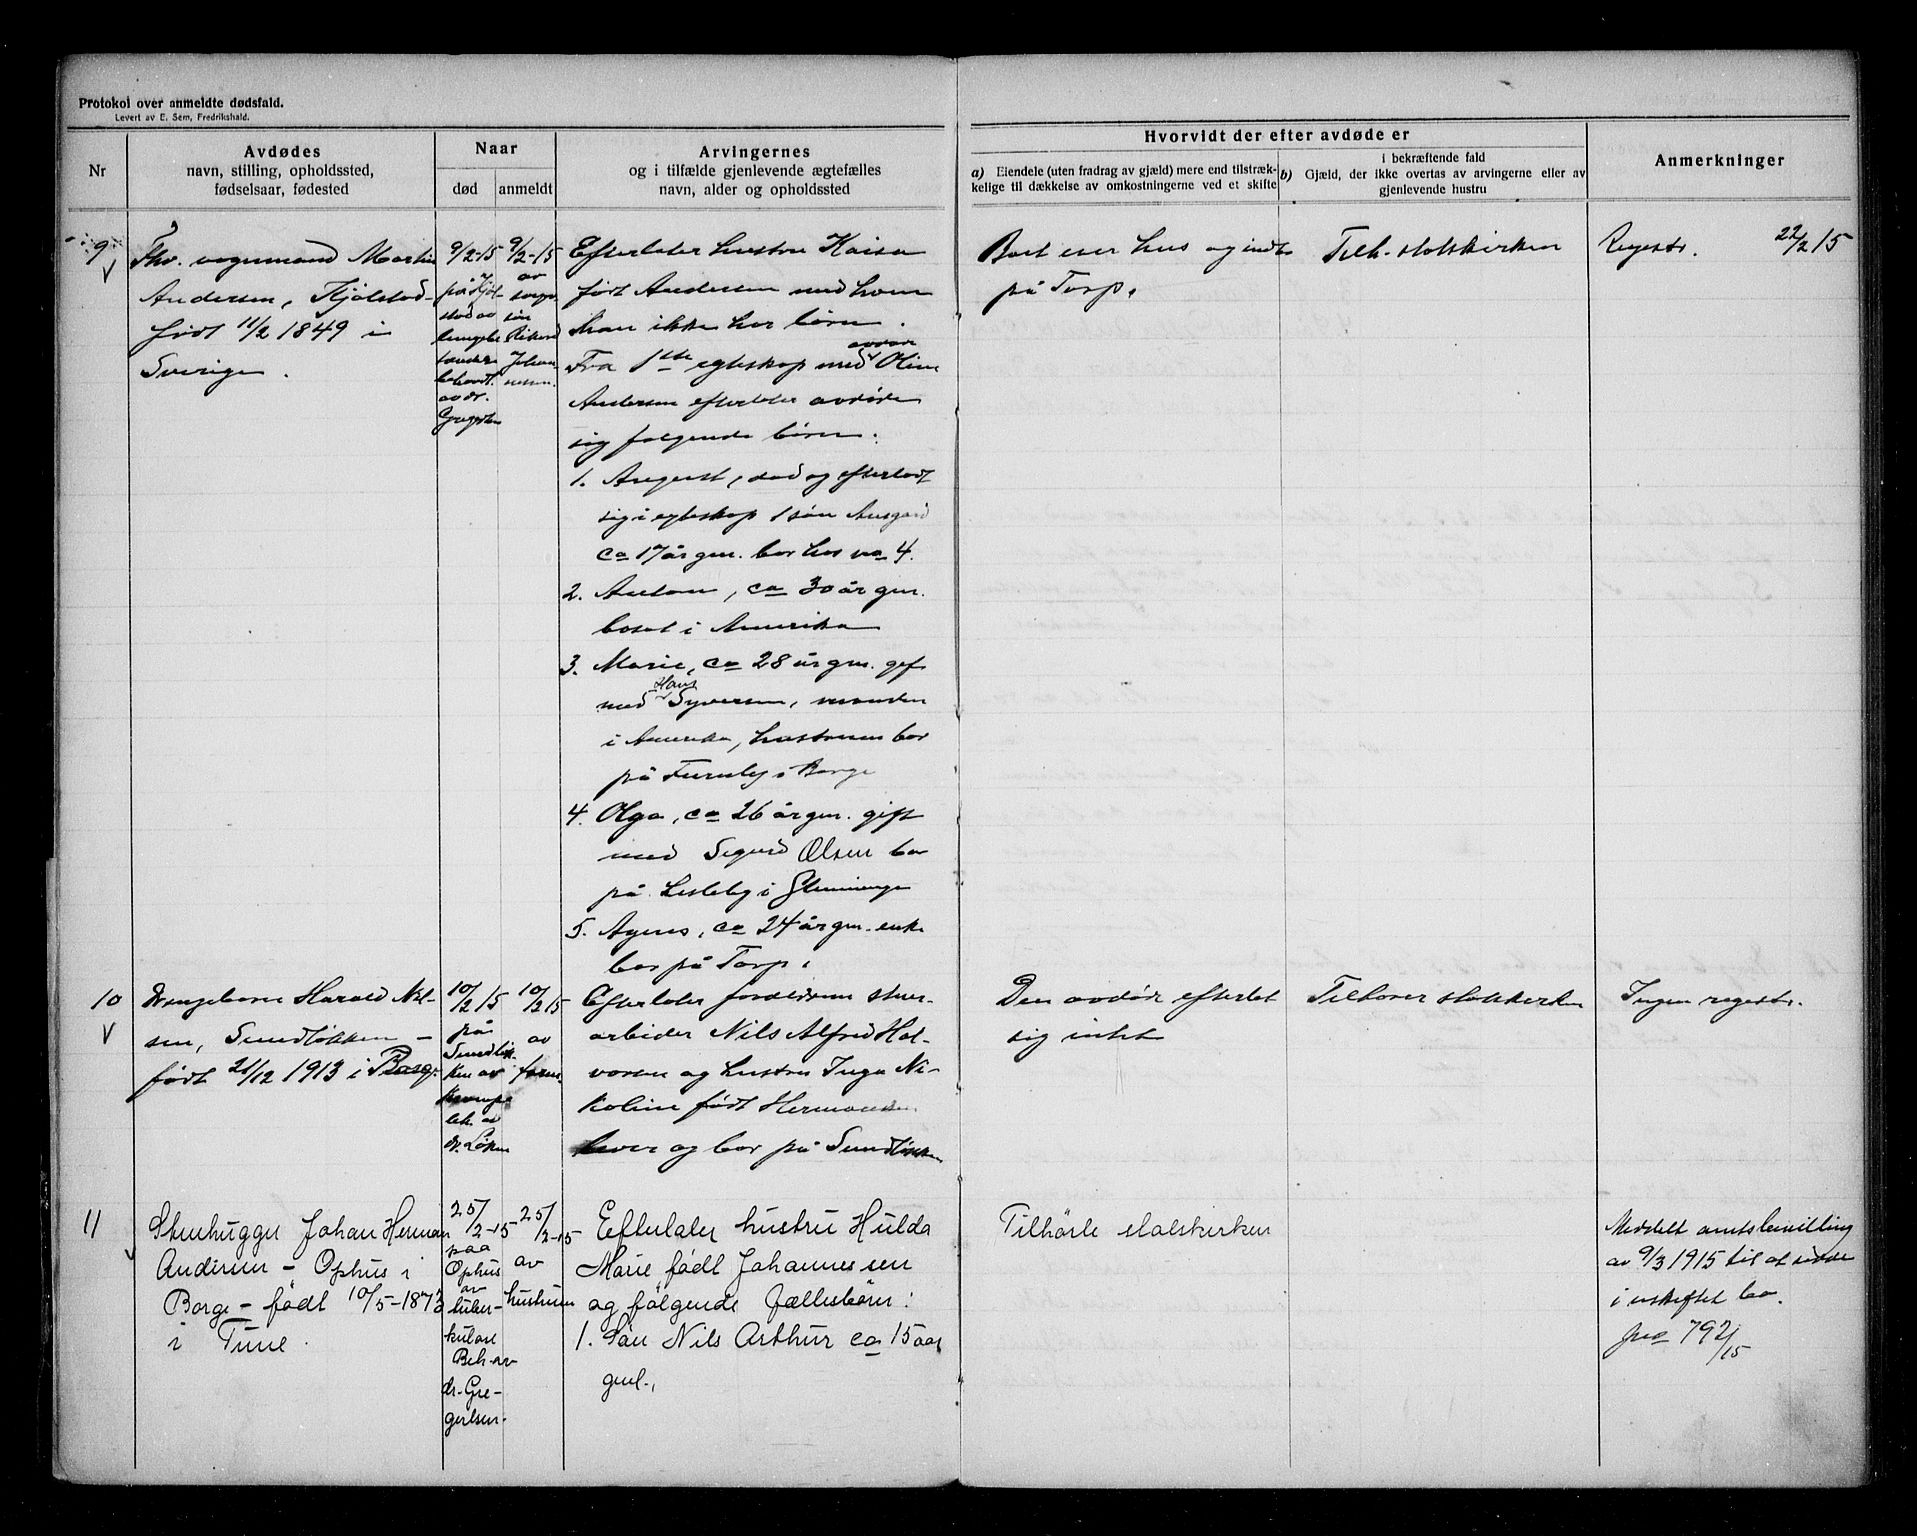 Protokol over anmeldte dødsfald.
Levert av E. Sem, Fredrikshald.
Nr
Avdødes
navn, stilling, opholdssted,
fødselsaar, fødested
Naar
død
anmeldt
Arvingernes
og i tilfælde gjenlevende ægtefælles
navn, alder og opholdssted
Hvorvidt der efter avdøde er
a) Eiendele (uten fradrag av gjæld) mere end tilstræk-
kelige til dækkelse av omkostningerne ved et skifte
i bekræftende fald
b) Gjæld, der ikke overtas av arvingerne eller av
gjenlevende hustru
Anmerkninger
9
Fhv. vognmand Martin
Andersen, Kjølstad-
født 11/2 1849 i
Sverige.
9/2-15
på Kjøl-
stad av
behandl.
av dr.
9/2-15
av
søn
Rikard
Johan-
nesen.
Efterlater hustru Kaisa
født Andersen med hvem
han ikke har børn.
Fra 1ste egteskap med avdøde Oline
Andersen efterlater avdøde
sig følgende børn:
1. August, død og efterlodt
sig i egteskap 1 søn Ansgard
ca 17 år gm. bor hos no 4.
2. Anton, ca 30 år gm.
bosat i Amerika
3. Marie, ca 28 år gm. gift
med Hans Syversen, manden
i Amerika, hustruen bor
på Furuly i Borge
4. Olga, ca 26 år gm. gift
med Sigurd Olsen bor
på Lisleby i Glemminge
5. Agnes, ca 24 år gm. enke
bor på Torp.
Boet eier hus og indbo
på Torp.
Tilh. statskirken
Regestr. 22/2 15
10
Drengebarn Harald Nil-
sen, Sundløkken -
født 21/12 1913 i Borge.
10/2 15
på
Sundløk-
ken av
krampe
beh. av
dr. Løken
10/2 15
av
faren.
Efterlater forældrene stuer-
arbeider Nils Alfred Hal-
vorsen og hustru Inga Ni-
koline født Hermansen
lever og bor på Sundløkken
Den avdøde efterlot
sig intet
Tilhører statskirken
Ingen regestr.
11
Stenhugger Johan Herman
Andersen - Ophus i
Borge - født 10/5-1873
i Tune.
25/2-15
paa
Ophus
av
tuber-
kulose
Beh. av
dr. Gre-
gertsen.
25/2-15
av
hustruen
Efterlater hustru Hulda
Marie født Johannessen
og følgende fællesbørn:
1. Søn Nils Arthur ca 15 aar
gml.,
Tilhørte statskirken
Meddelt amtsbevilling
av 9/3 1915 til at sidde
i uskiftet bo.
jno 792/15